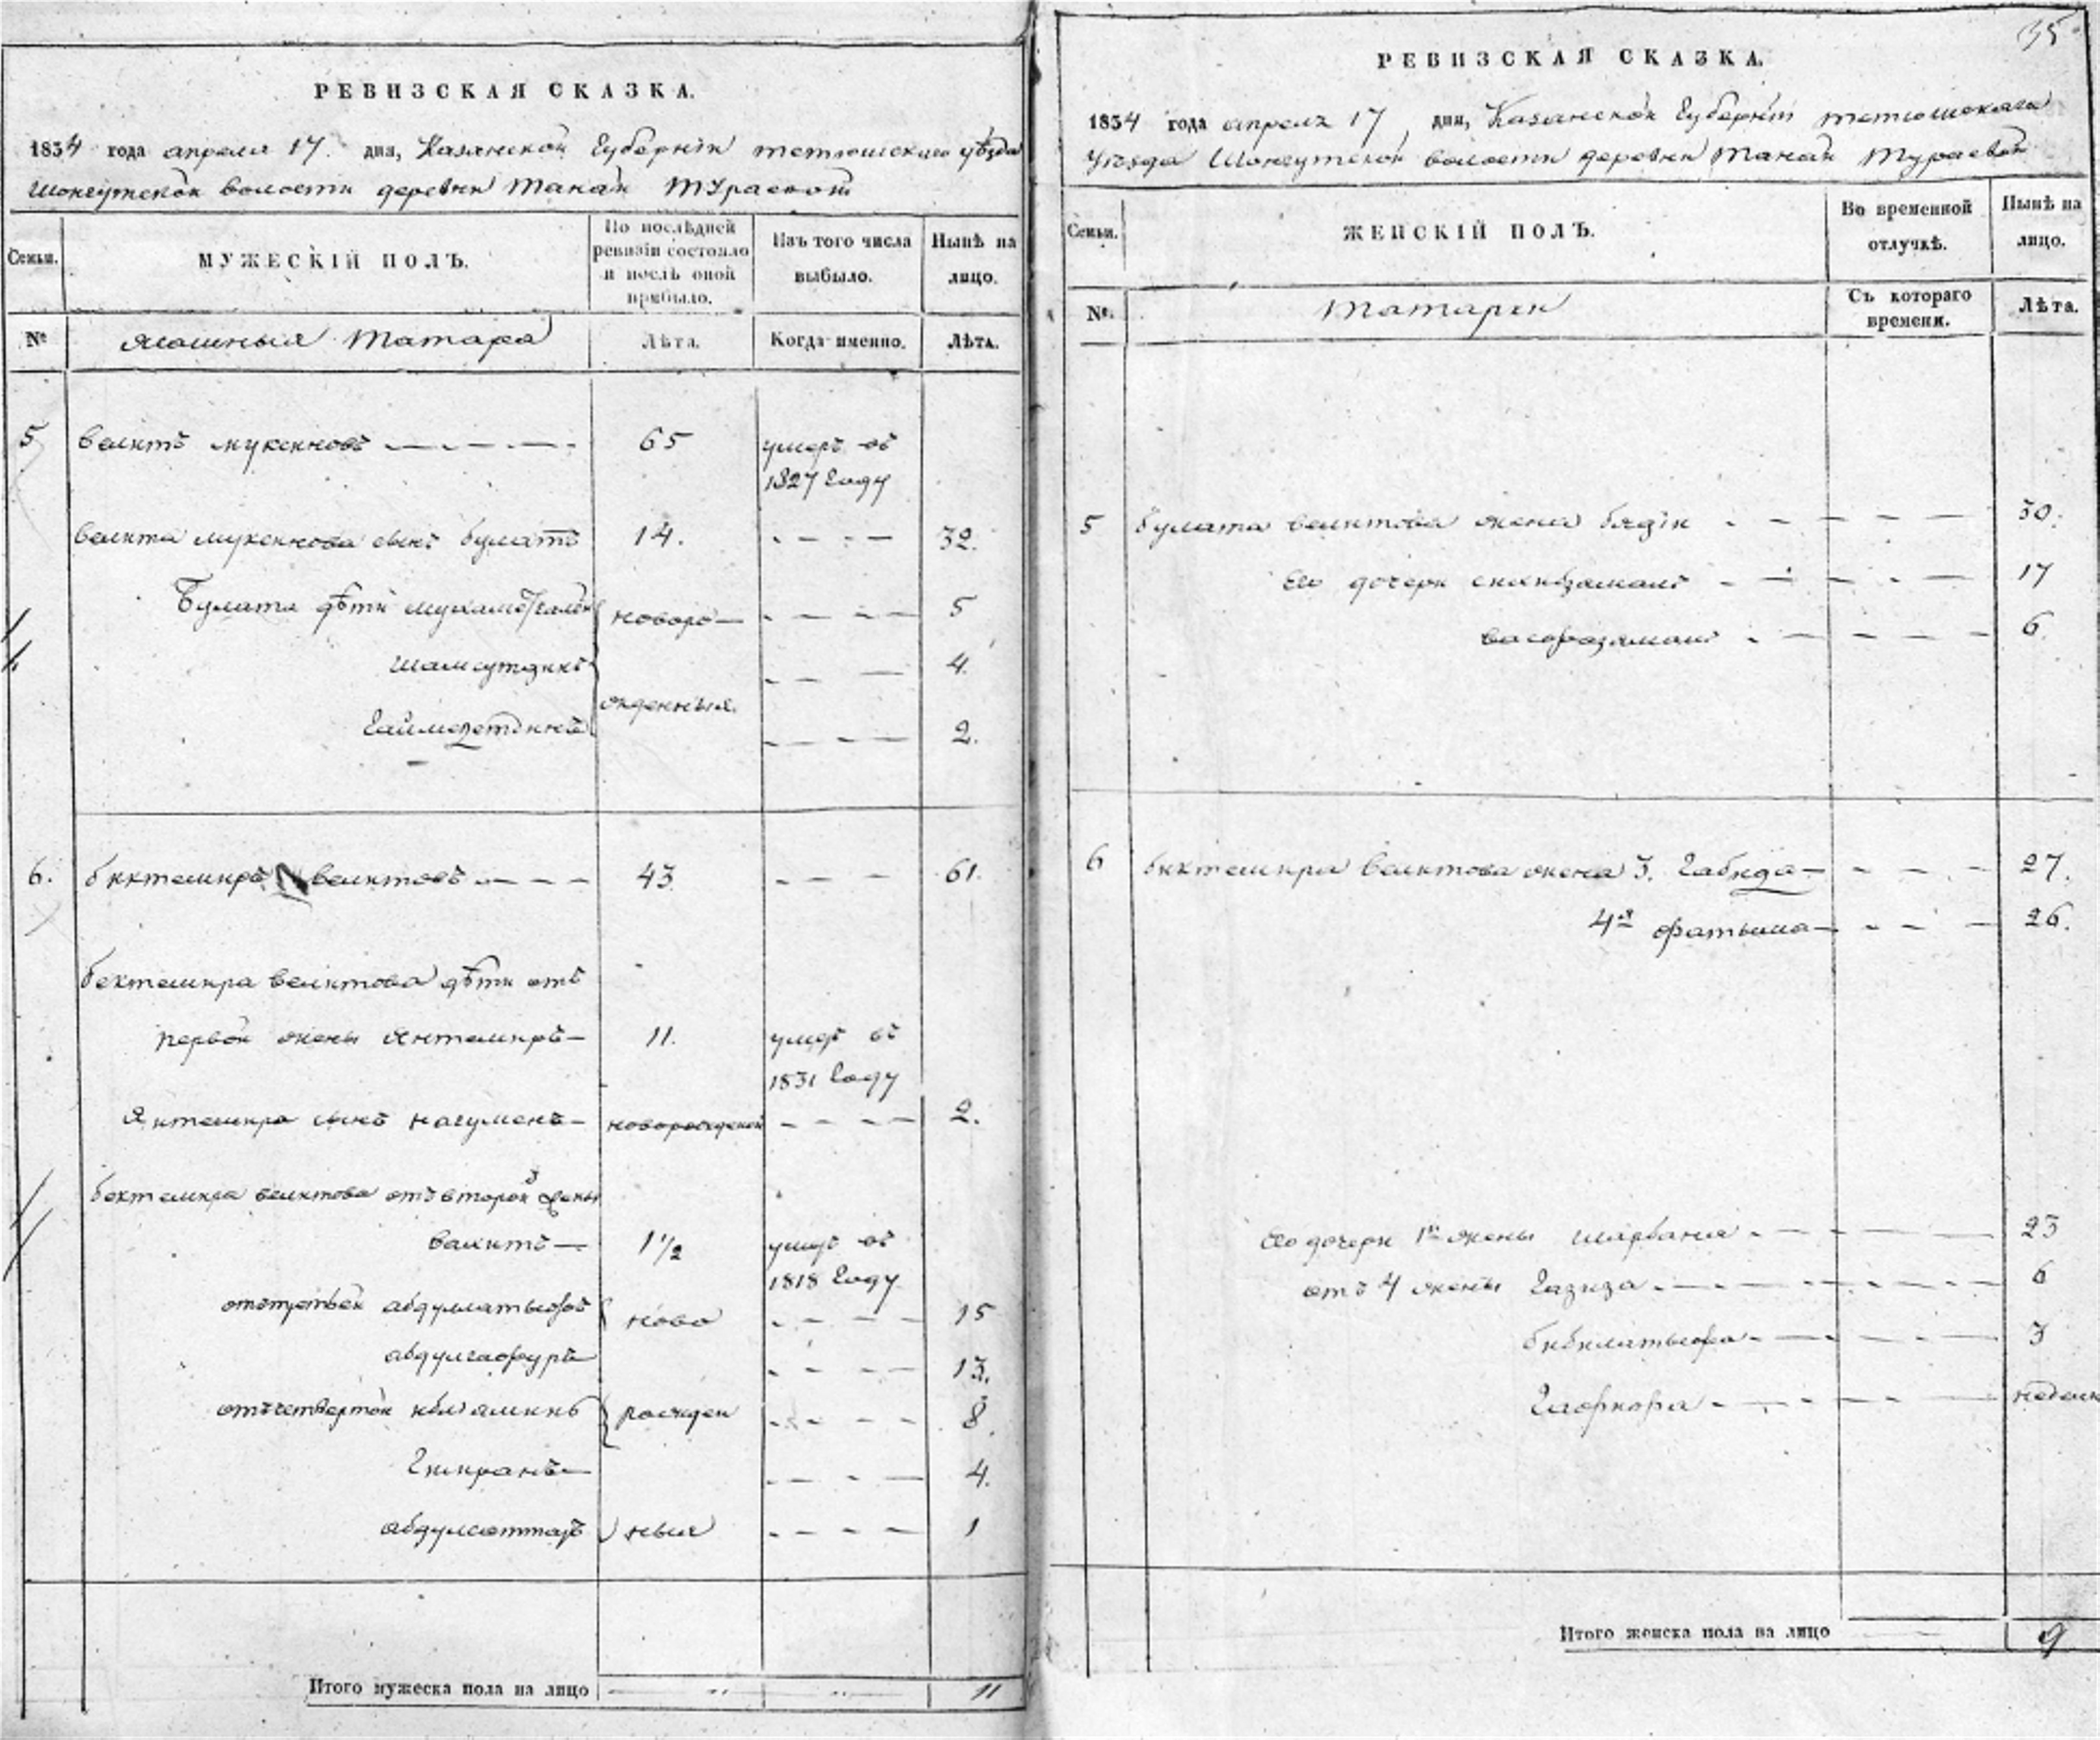 РЕВИЗСКАЯ СКАЗКА.
1834 года апреля 17. дня, Казанской Губернiи тетюшскаго уѣзда
Шонгутской волости деревни Танай Тураевой
Семьи.
МУЖЕСКIЙ ПОЛЪ.
По послѣдней ревизiи состояло и послѣ оной прибыло.
Изъ того числа выбыло.
Нынѣ на лицо.
№
ясашныя Татара
Лѣта.
Когда именно.
Лѣта.
5 Веитъ мукеиновъ 65 умеръ въ
1827 Году
Веита мукеинова сынъ булатъ 14. 32.
Булата дѣти новоро 5
Шамсутдинъ 4.
жденныя.
2.
6. биктемиръ Веитовъ 43. 61.
бектемира веитова дѣти отъ
первой жены Янтемиръ 11. умеръ въ
1831 Году
Янтемира сынъ нагуменъ новорожденой 2.
бектемира веитова отъ второй жены
Ваитъ 1 1/2 умеръ въ
1818 Году
отъ третьей абдуллатыфъ ново 15
абдулгафуръ 13.
отъ четвертой рожден 8.
Гимранъ 4.
абдулсаттаръ ныя 1
Итого мужеска пола на лицо 11
35
РЕВИЗСКАЯ СКАЗКА.
1834 года апреля 17, дня, Казанской Губернiи тетюшскаго
Уѣзда Шонгутской волости деревни Танай Тураевой
Семьи.
ЖЕНСКIЙ ПОЛЪ.
Во временной отлучкѣ.
Нынѣ на лицо.
№.
Татарки
Съ котораго времени.
Лѣта.
5 булата веитова жена бядiи 30.
Его дочери 17
6.
6 биктемира Веитова жена 3. Габида 27.
4я фатыма 26.
Его дочери 1й жены шарбания 23
отъ 4 жены Газиза 6
бибилатыфа 3
недели
Итого женска пола на лицо 9